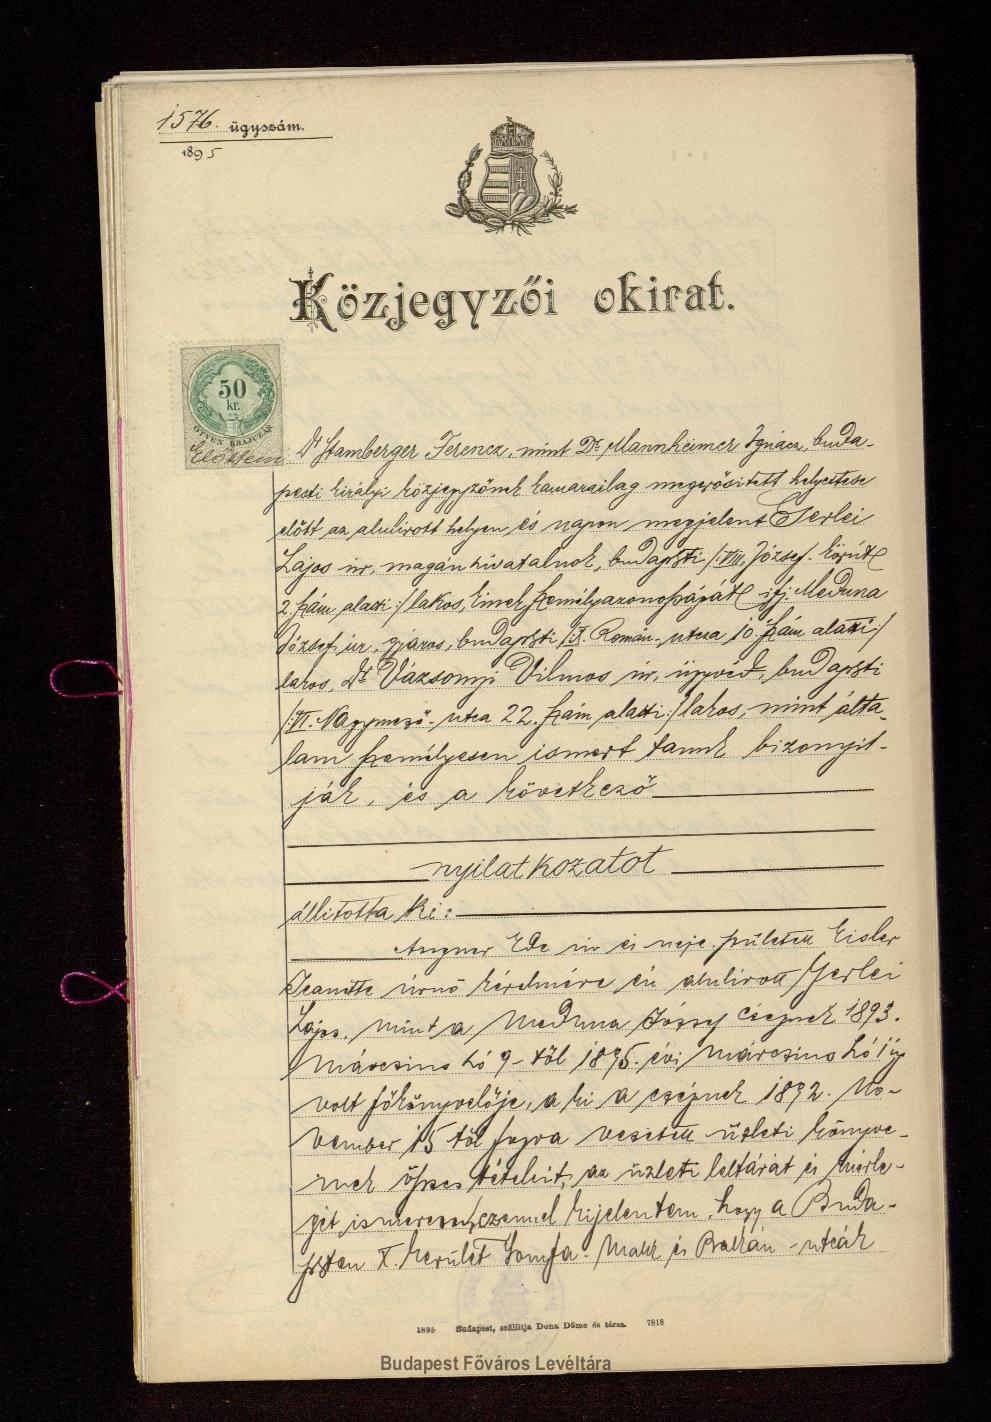 1576. ügyszám.
1895
Közjegyzői okirat.
50
kr.
ÖTVEN KRAJCZÁR
Előttem Dr Stamberger Ferencz, mint Dr. Mannheimer Ignácz, buda-
pesti királyi közjegyzőnek kamarailag megerősített helyettese
előtt az alulirott helyen és napon megjelent Gerlei
Lajos úr, magánhivatalnok, budapesti /:VIII. József-körút
2 szám alatti:/ lakos, kinek személyazonosságát ifj. Meduna
József úr, budapesti /:X. Román-utcza 10 szám alatti:/
lakos, Dr Vázsonyi Vilmos úr, ügyvéd, budapesti
/:VI. Nagymező-utca 22. szám alatti:/ lakos, mint álta-
lam személyesen ismert tanuk bizonyít-
ják, és a következő
nyilatkozatot
állitotta ki:
Angner Ede úr és neje született Eisler
Jeanette úrnő kérelmére én alulirott Gerlei
Lajos, mint a Meduna József czégnek 1893.
márczius hó 9-től 1895. évi márczius hó 1 ig
volt főkönyvelője, a ki a czégnek 1892. No-
vember 15 től fogva vezetett üzleti könyve-
inek összes tételeit, az üzleti leltárát és mérle-
gét ismerem, ezennel kijelentem, hogy a Buda-
pesten X. kerület Gomfa- Mák és Balkán-utcák
1895 Budapest, szállitja Dona Döme és társa. 7818
Budapest Főváros Levéltára